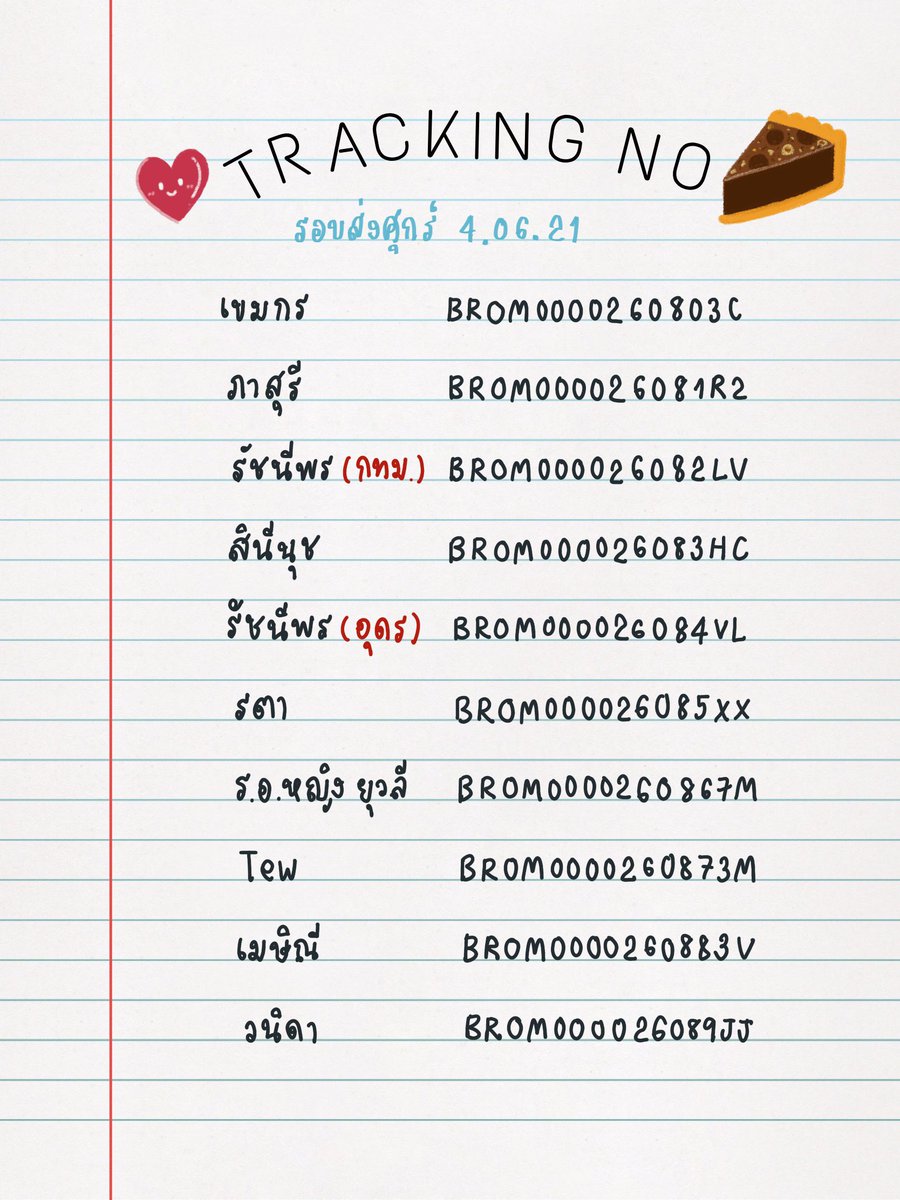 TRACKING NO
รอบส่งศุกร์ 4.06.21
เขมกร BROM0000260803C
ภาสุรี BROM000026081R2
รัชนีพร (กทม.) BROM000026082LV
สินีนุช BROM000026083HC
รัชนีพร (อุดร) BROM000026084VL
รตา BROM000026085XX
ร.อ.หญิง ยุวลี BROM0000260867M
Tew BROM0000260873M
เมษิณี BROM0000260883V
วนิดา BROM000026089JJ